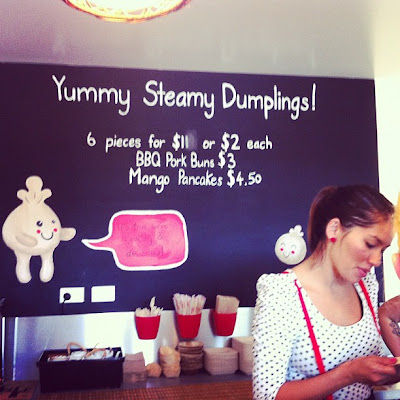 Yummy Steamy Dumplings!
6 pieces for $11 or $2 each
BBQ Pork Buns $3
Mango Pancakes $4.50